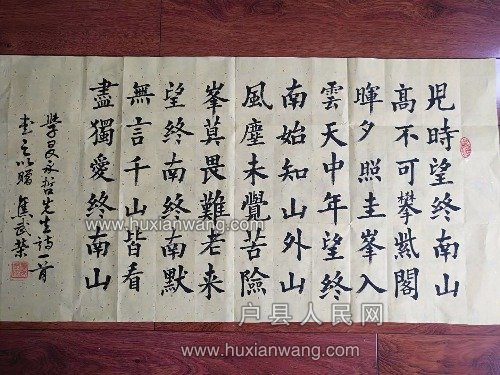 児時望終南山
髙不可攀紫閣
暉夕照圭峯入
雲天中年望終
南始知山外山
風塵未覺苦險
峯莫畏難老来
望終南終南默
無言千山皆看
盡獨愛終南山
永哲先生詩一首
以贈
www.huxianwang.com
户县人民网
www.huxianwang.com
www.huxianwang.com